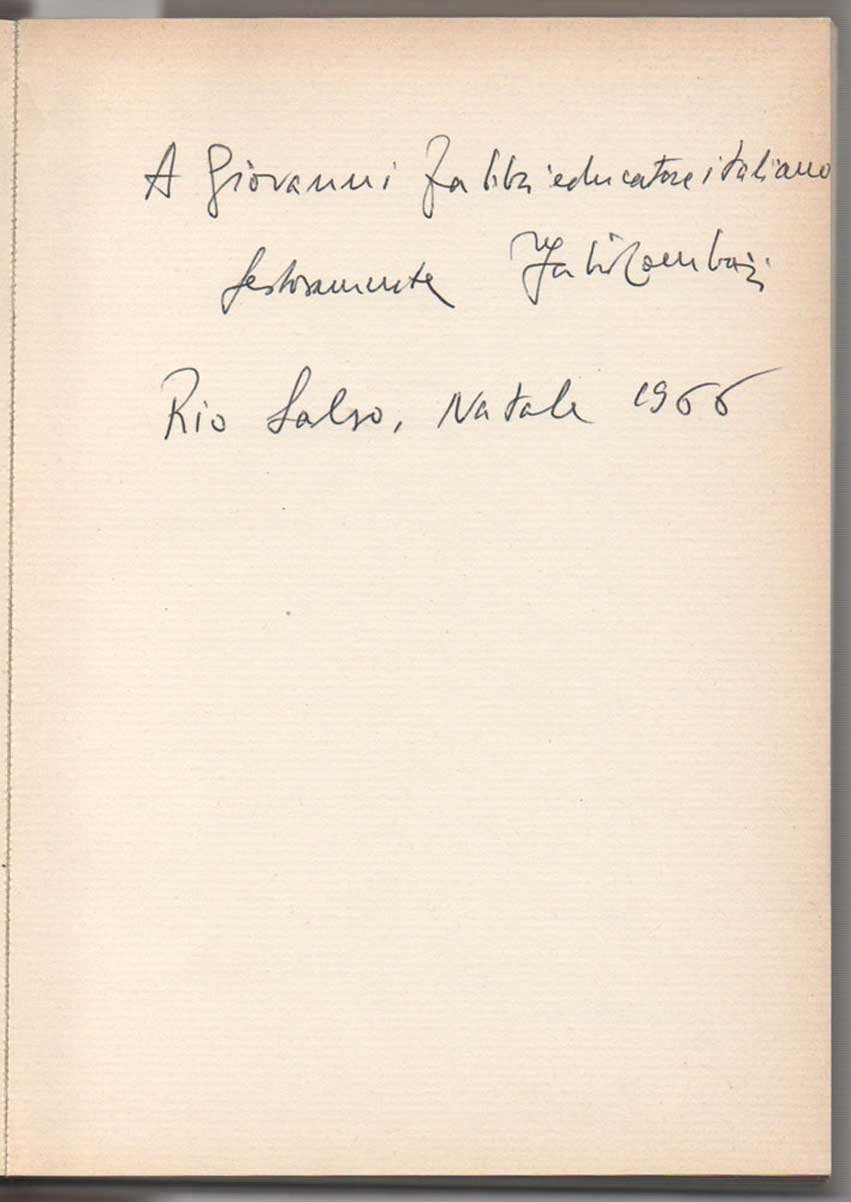 A Giovanni Fabbri educatore italiano
festosamente Fabio Tombari
Rio Salso, Natale 1966